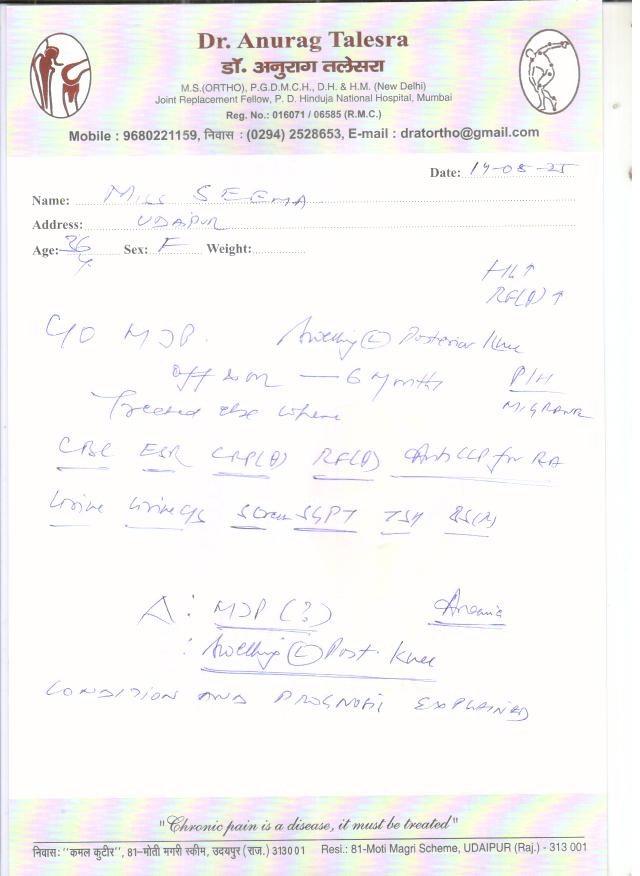 Dr. Anurag Talesra
डॉ. अनुराग तलेसरा
M.S.(ORTHO), P.G.D.M.C.H., D.H. & H.M. (New Delhi)
Joint Replacement Fellow, P. D. Hinduja National Hospital, Mumbai
Reg. No.: 016071 / 06585 (R.M.C.)
Mobile : 9680221159, निवास : (0294) 2528653, E-mail : dratortho@gmail.com
Date: 14-08-25
Name: MISS SEEMA
Address: UDAIPUR
Age: 36/y Sex: F Weight:
RF(A) ↑
C/O MJP. Swelling (L) Posterior Knee
off & on — 6 Months P/H
Treated else where MIGRANE
CBC ESR CRP(A) RF(A) Anti CCP for RA
Urine Urine C/s SCrea SGPT TSH BS(R)
A: MJP (?) Anemia
: Swelling (L) Post. Knee
CONDITION AND PROGNOSIS EXPLAINED
"Chronic pain is a disease, it must be treated"
निवास: "कमल कुटीर", 81–मोती मगरी स्कीम, उदयपुर (राज.) 313001 Resi.: 81-Moti Magri Scheme, UDAIPUR (Raj.) - 313 001